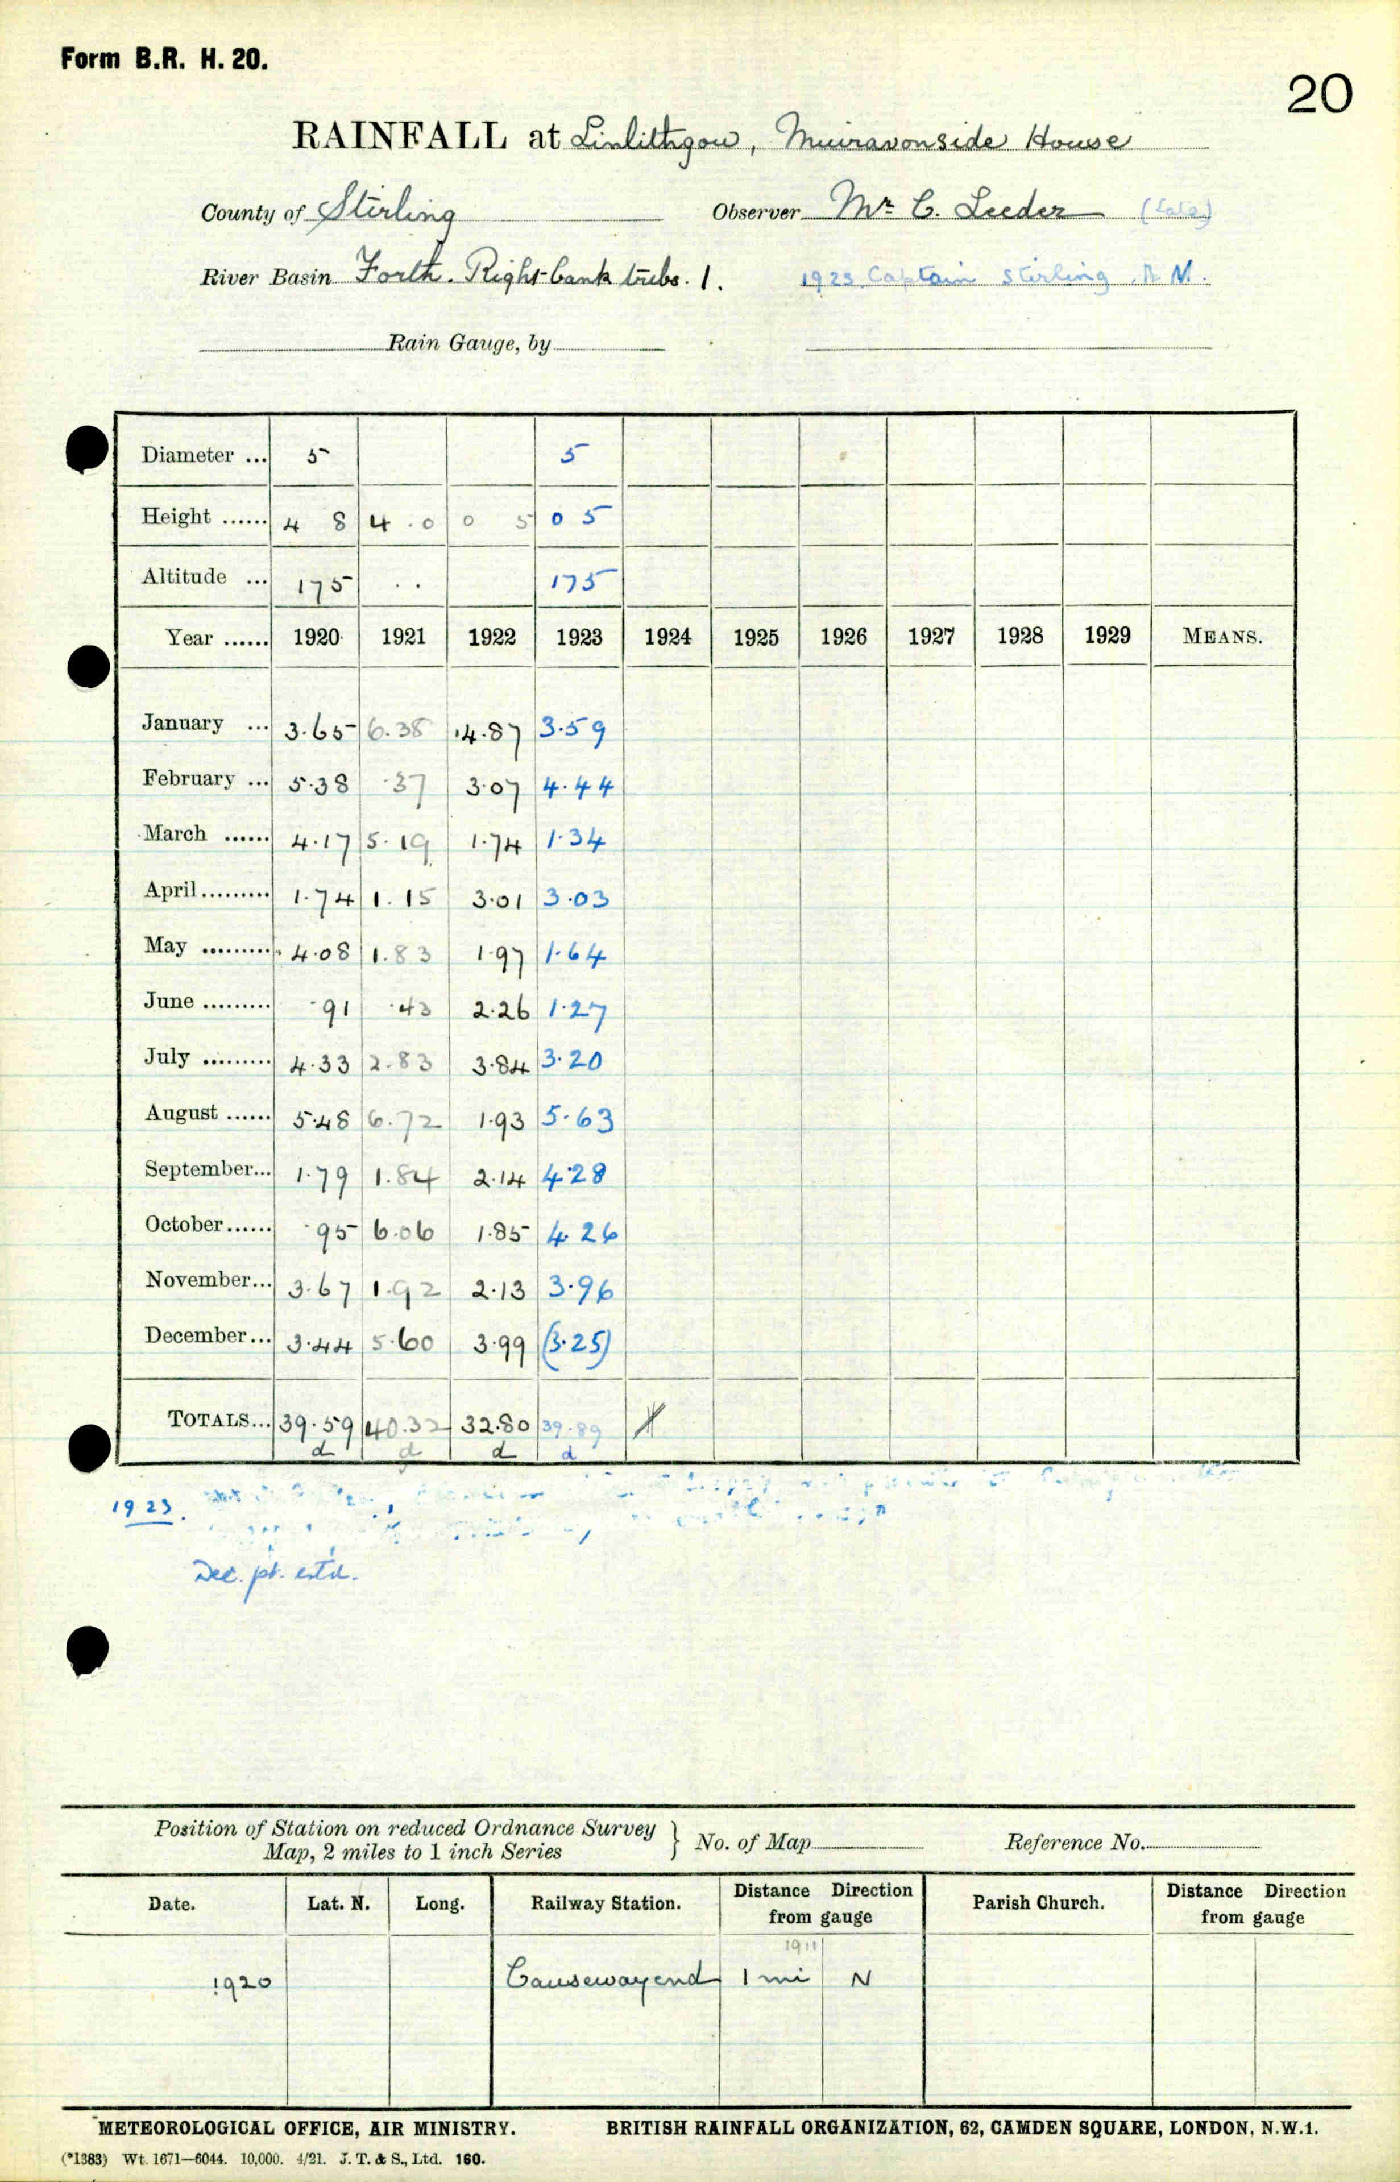 Form B.R. H. 20.
20
RAINFALL at Linlithgow, Muiravonside House
County of Stirling Observer Mr. C. Leeder (late)
River Basin Forth. Right-bank tribs. 1. 1923. Captain Stirling R.N.
Rain Gauge, by
Diameter ... 5 5
Height ...... 4 8 4.0 0 5 0 5
Altitude ... 175 .. 175
Year ...... 1920 1921 1922 1923 1924 1925 1926 1927 1928 1929 MEANS.
January ... 3.65 6.38 4.87 3.59
February ... 5.38 .37 3.07 4.44
March ...... 4.17 5.19 1.74 1.34
April ......... 1.74 1.15 3.01 3.03
May ......... 4.08 1.83 1.97 1.64
June ......... .91 .43 2.26 1.27
July ......... 4.33 2.83 3.84 3.20
August ...... 5.48 6.72 1.93 5.63
September... 1.79 1.84 2.14 4.28
October...... .95 6.06 1.85 4.26
November... 3.67 1.92 2.13 3.96
December... 3.44 5.60 3.99 (3.25)
TOTALS... 39.59 40.32 32.80 39.89
d d d d
1923.
Dec. pt. estd.
Position of Station on reduced Ordnance Survey
Map, 2 miles to 1 inch Series } No. of Map Reference No.
Date. Lat. N. Long. Railway Station. Distance Direction from gauge Parish Church. Distance Direction from gauge
1911
1920 Causewayend 1 mi N
METEOROLOGICAL OFFICE, AIR MINISTRY. BRITISH RAINFALL ORGANIZATION, 62, CAMDEN SQUARE, LONDON, N.W.1.
(*1383) Wt. 1671—6044. 10,000. 4/21. J. T. & S., Ltd. 160.